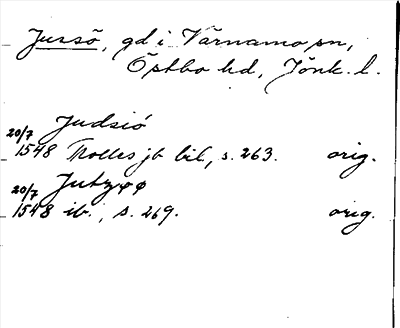 Jussö, gd i Värnamo sn,
Östbo hd, Jönk. l.
Judsiö
20/7
1548 Trolles jb bil, s. 263. orig.
Jutzøø
20/7
1548 ib., s. 269. orig.